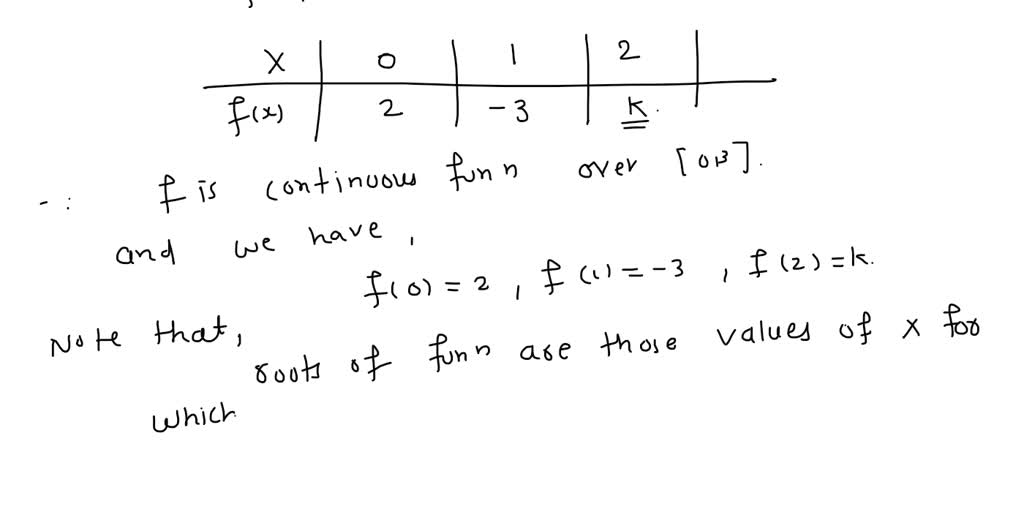 x | 0 | 1 | 2 |
f(x) | 2 | -3 | k.
-: f is continuous funn over [0,3].
and we have,
f(0) = 2, f(1) = -3, f(2) = k.
Note that,
roots of funn are those values of x for
which